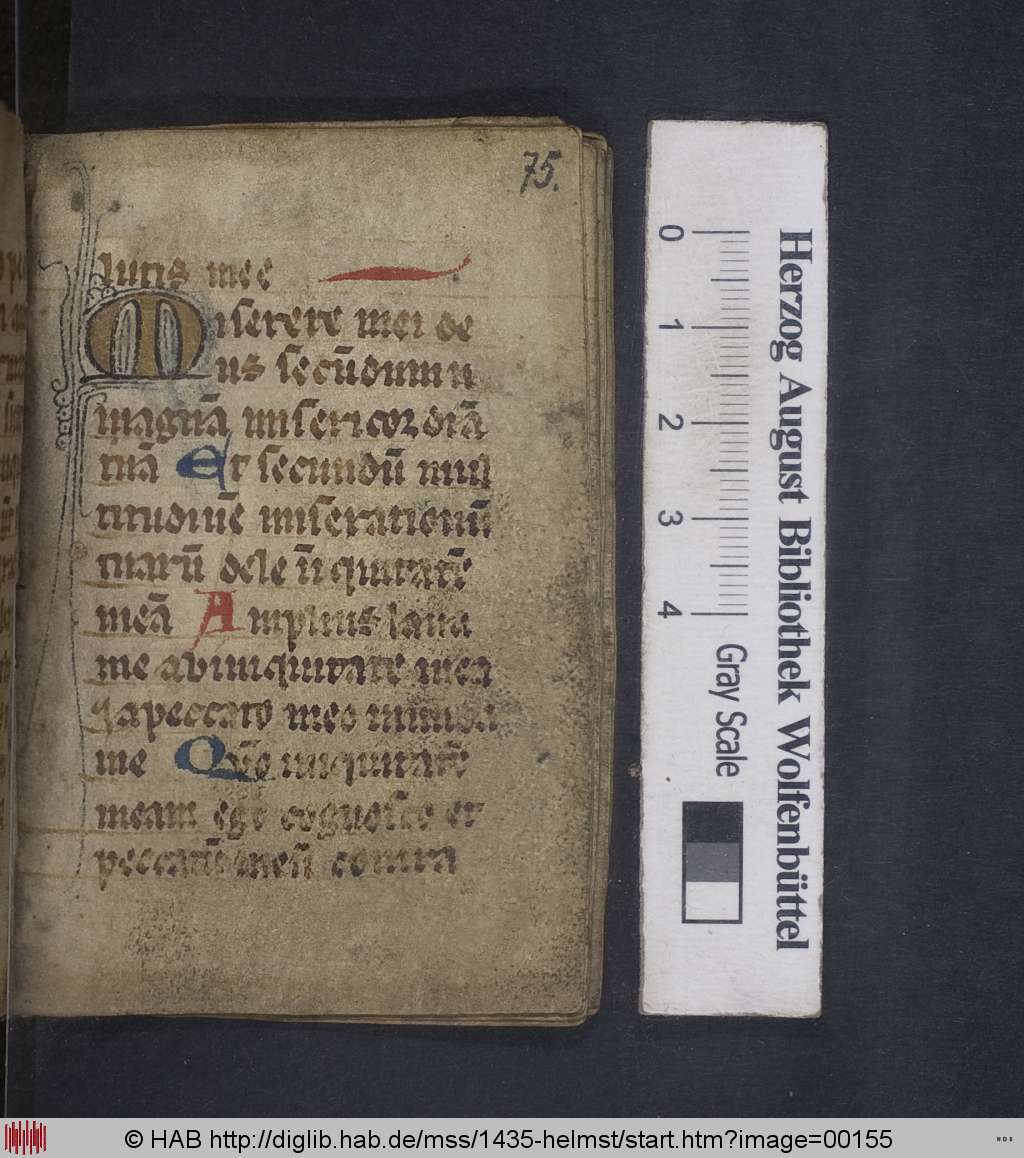 75.
lutis mee
Miserere mei de
us secūdum
magnā misericordiā
tuā Et secundū mul
titudinē miserationū
tuarū dele īiquitatē
meā Amplius laua
me ab iniquitate mea
⁊ a peccato meo munda
me Qm̄ iniquitatē
meam ego cognosco et
peccatū meū contra
0 1 2 3 4
Gray Scale
Herzog August Bibliothek Wolfenbüttel
© HAB http://diglib.hab.de/mss/1435-helmst/start.htm?image=00155